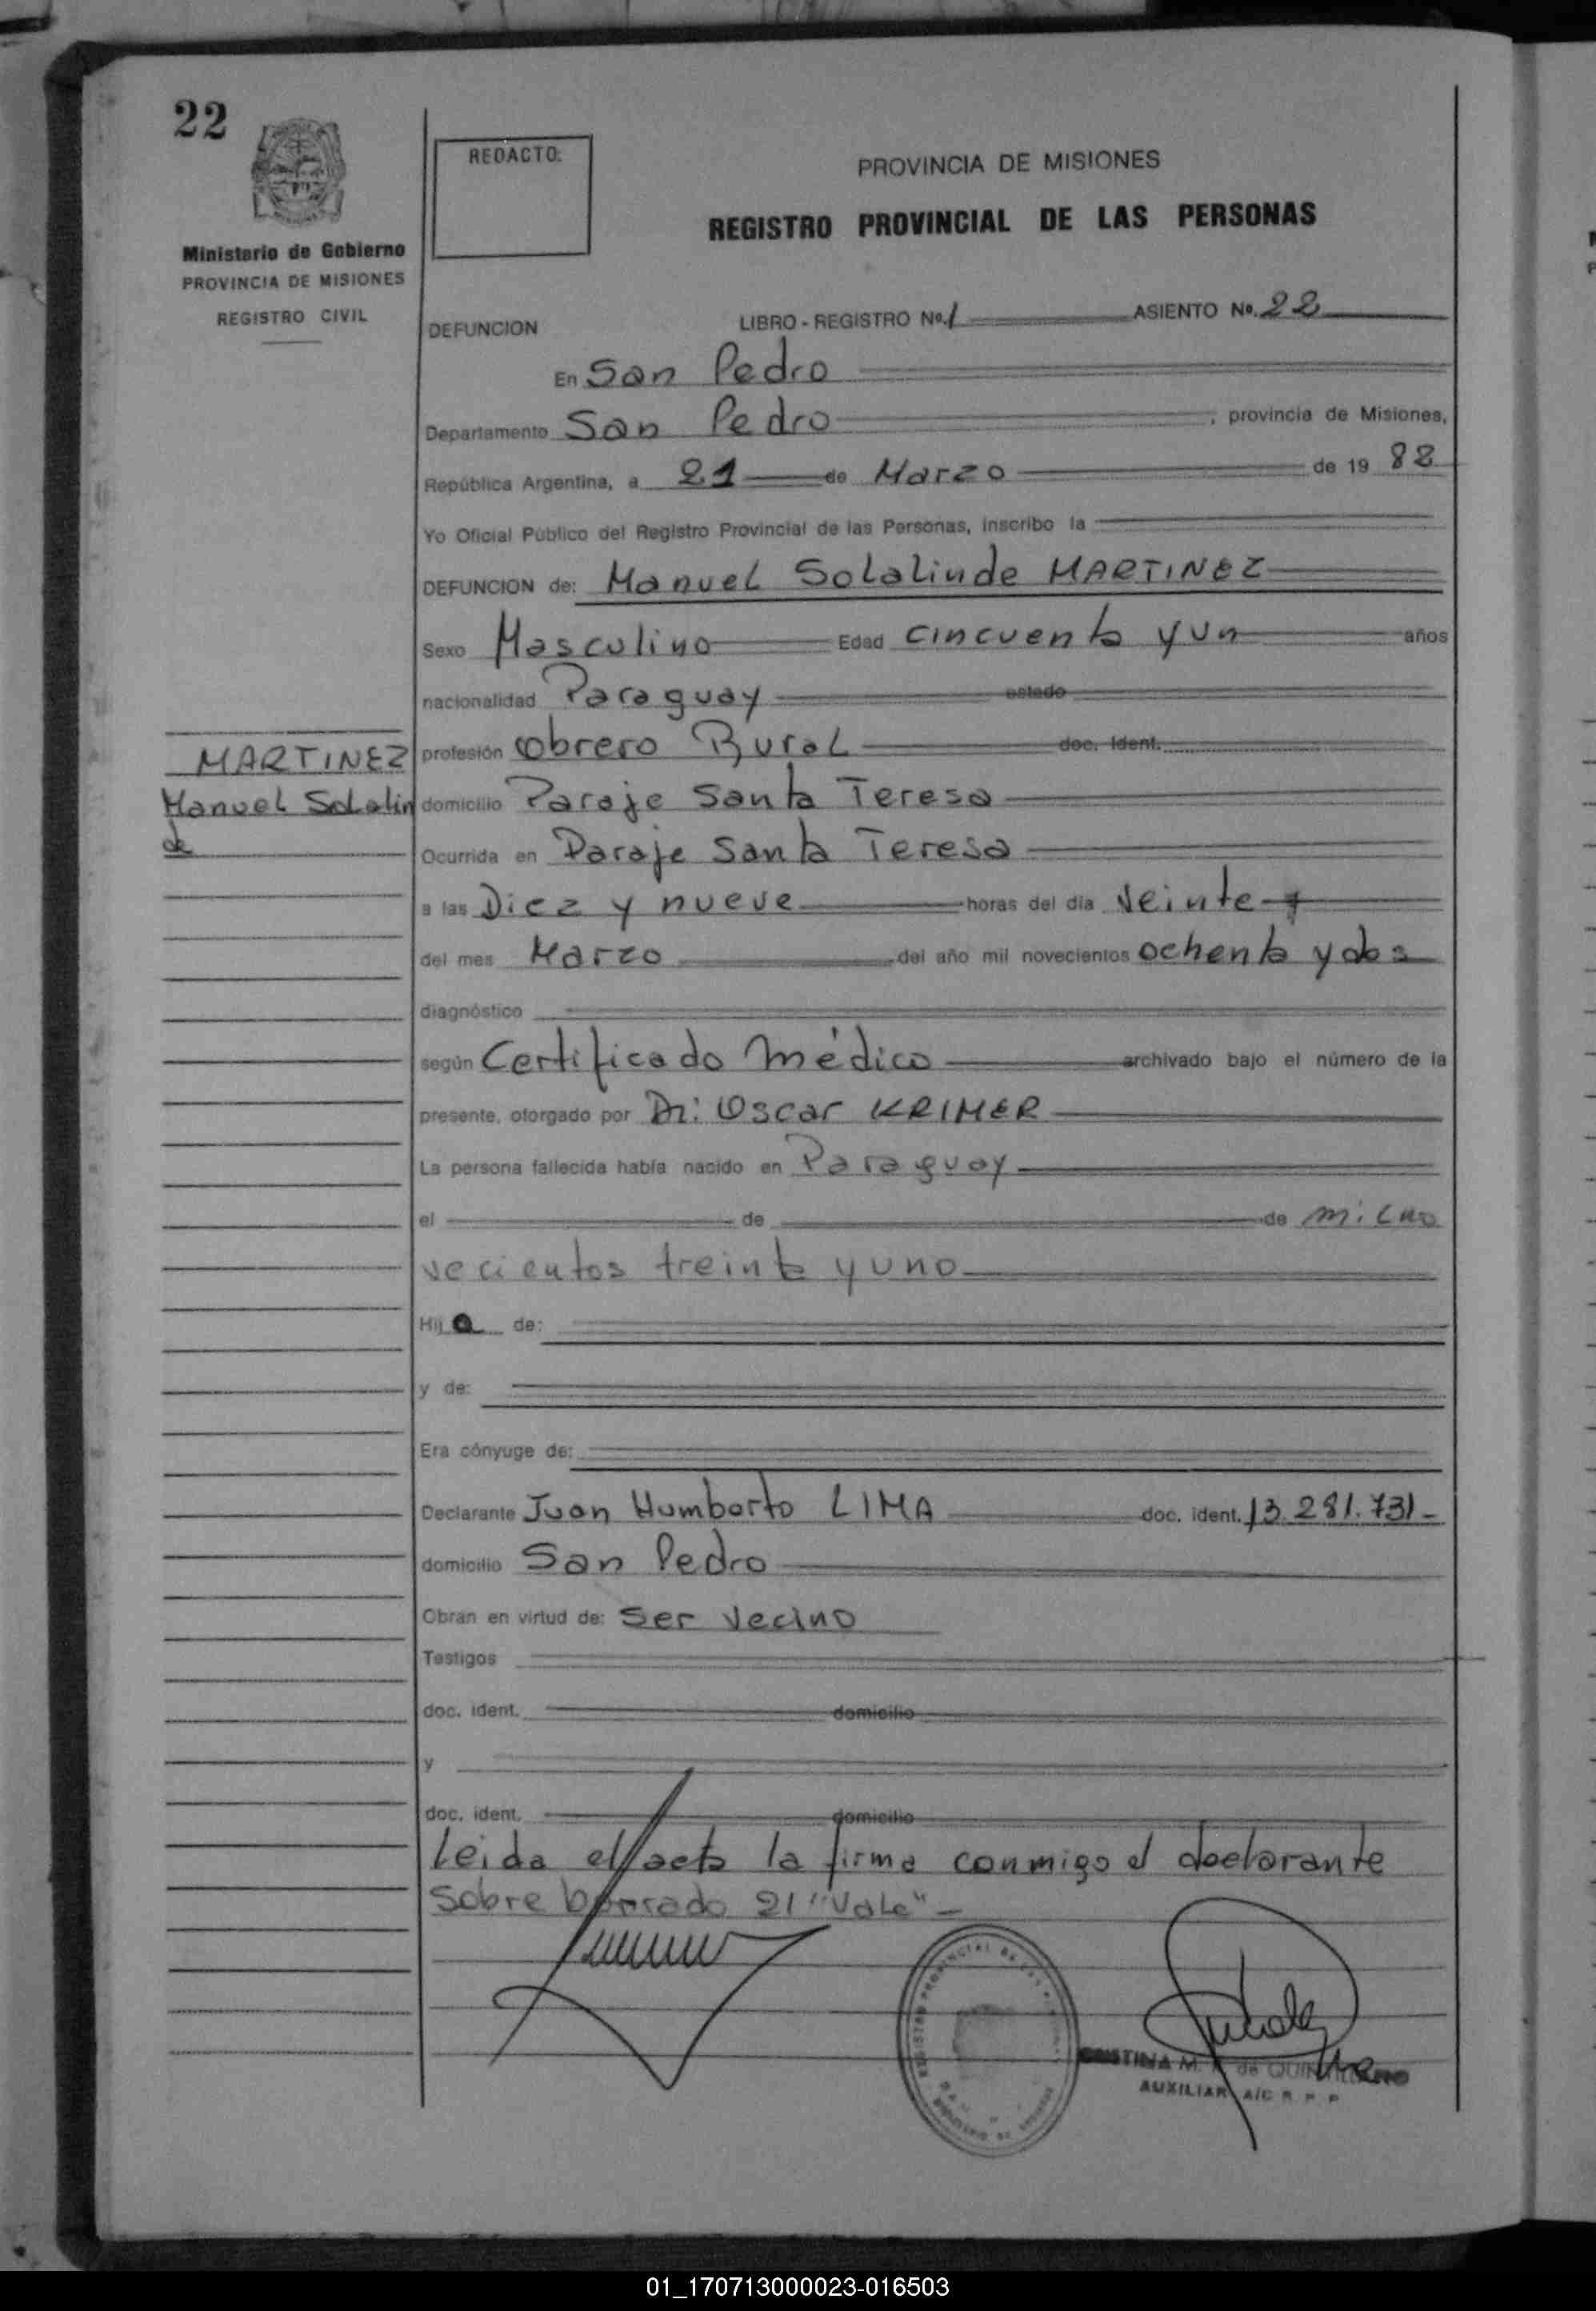 22
REDACTO:
PROVINCIA DE MISIONES
REGISTRO PROVINCIAL DE LAS PERSONAS
Ministerio de Gobierno
PROVINCIA DE MISIONES
REGISTRO CIVIL
DEFUNCION LIBRO - REGISTRO No. 1 ASIENTO No. 22
En San Pedro
Departamento San Pedro, provincia de Misiones,
República Argentina, a 21 de Marzo de 19 82
Yo Oficial Público del Registro Provincial de las Personas, inscribo la
DEFUNCION de: Manuel Solalinde MARTINEZ
Sexo Masculino Edad cincuenta y un años
nacionalidad Paraguay estado
MARTINEZ
Manuel Solalin
de
profesión obrero Rural doc. ident.
domicilio Paraje Santa Teresa
Ocurrida en Paraje Santa Teresa
a las Diez y nueve horas del día veinte
del mes Marzo del año mil novecientos ochenta y dos
diagnóstico
según Certificado Médico archivado bajo el número de la
presente, otorgado por Dr: Oscar KRIMER
La persona fallecida había nacido en Paraguay
el de de mil no
vecientos treinta y uno
Hij o de:
y de:
Era cónyuge de:
Declarante Juan Humberto LIMA doc. ident. 13.281.731-
domicilio San Pedro
Obran en virtud de: Ser vecino
Testigos
doc. ident. domicilio
y
doc. ident. domicilio
Leida el acta la firma conmigo el declarante
Sobre borrado 21 "Vale"-
CRISTINA M. de
AUXILIAR A/C R. P. P.
01_170713000023-016503